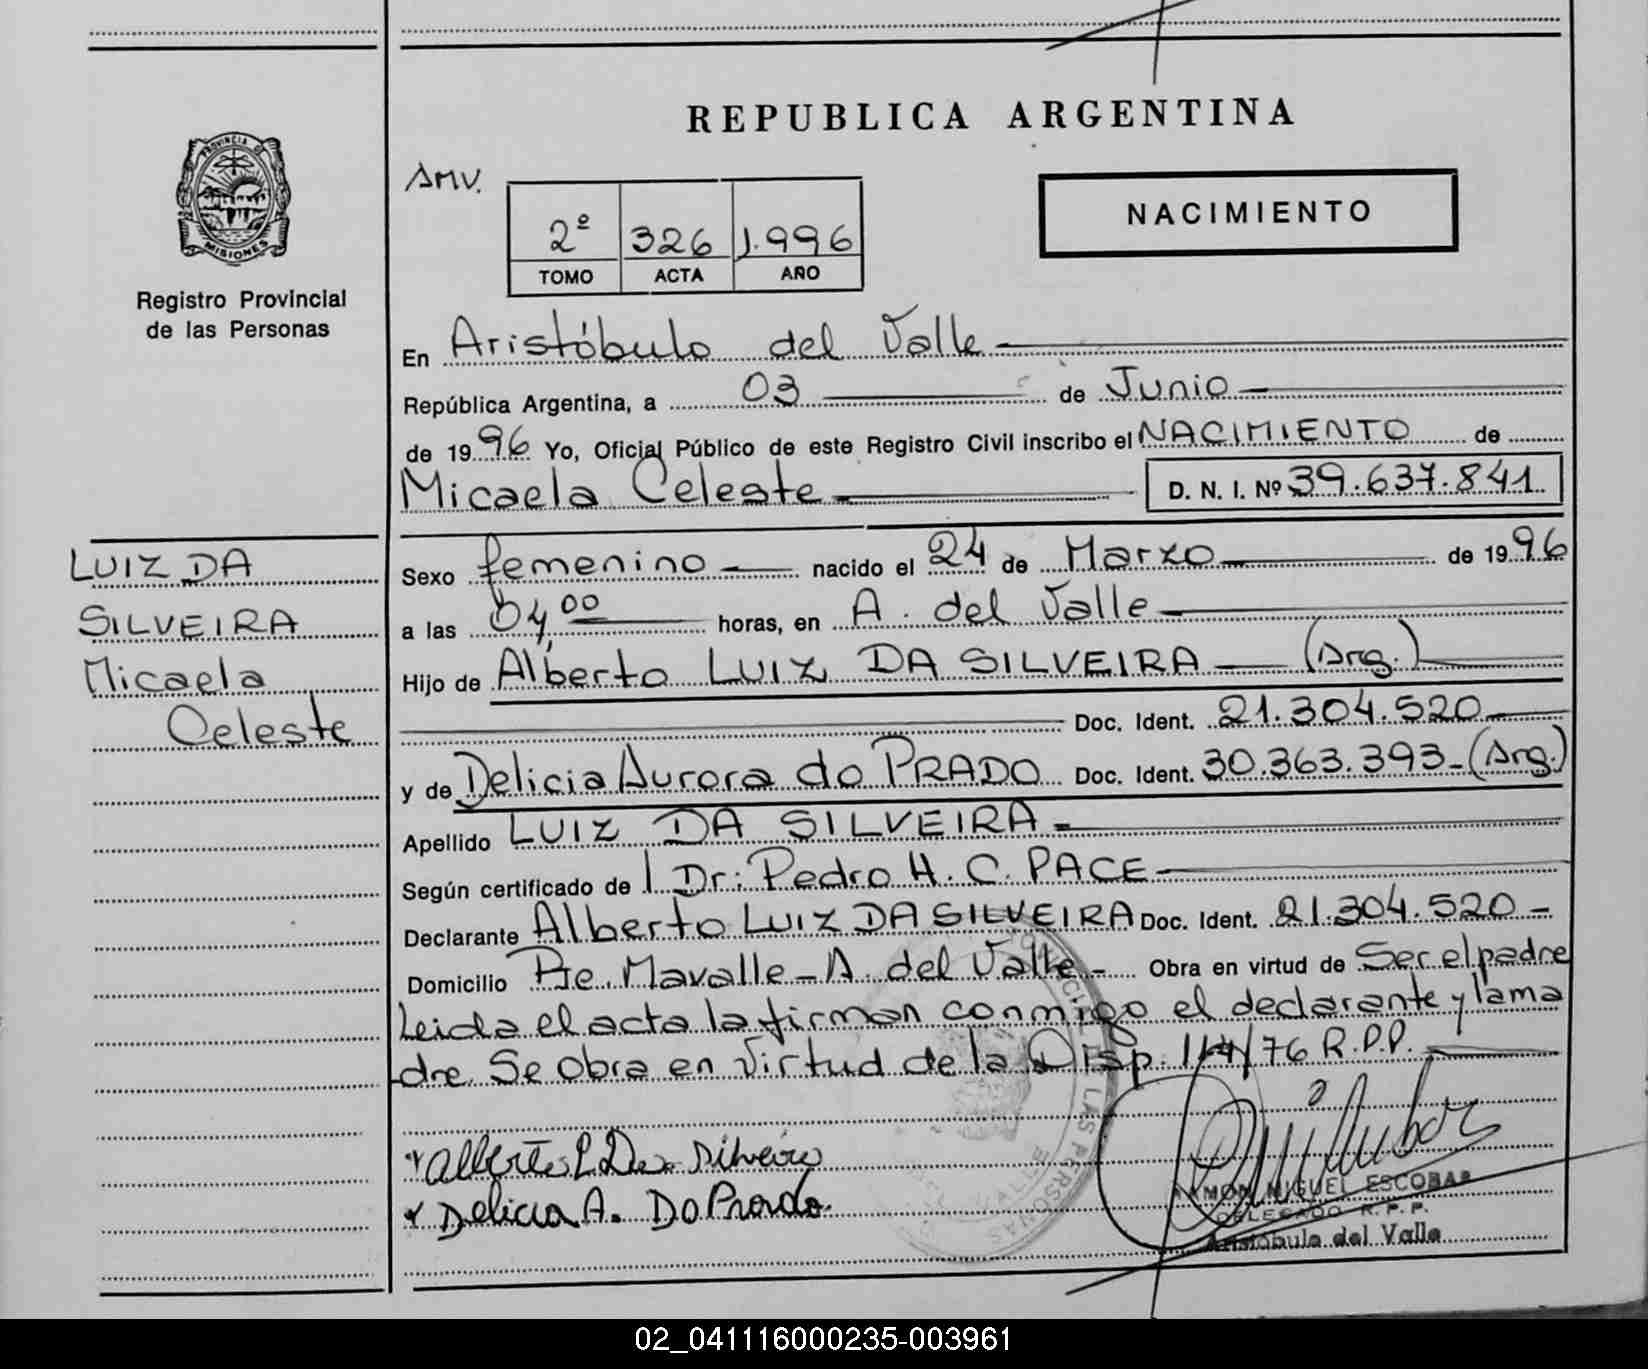 REPUBLICA ARGENTINA
PROVINCIA DE
MISIONES
Registro Provincial
de las Personas
AMV.
2º 326 1.996
TOMO ACTA AÑO
NACIMIENTO
En Aristóbulo del Valle
República Argentina, a 03 de Junio
de 1996 Yo, Oficial Público de este Registro Civil inscribo el NACIMIENTO de
Micaela Celeste D. N. I. Nº 39.637.841
LUIZ DA
SILVEIRA
Micaela
Celeste
Sexo femenino nacido el 24 de Marzo de 1996
a las 04,00 horas, en A. del Valle
Hijo de Alberto LUIZ DA SILVEIRA (Arg.)
Doc. Ident. 21.304.520
y de Delicia Aurora do PRADO Doc. Ident. 30.363.393-(Arg.)
Apellido LUIZ DA SILVEIRA
Según certificado de Dr: Pedro H. C. PACE
Declarante Alberto LUIZ DA SILVEIRA Doc. Ident. 21.304.520
Domicilio Pje. Mavalle - A. del Valle - Obra en virtud de Ser el padre
Leida el acta la firman conmigo el declarante y la ma
dre. Se obra en virtud de la Disp. 114/76 R.P.P.
Alberto L Da Silveira
Delicia A. Do Prado
RAMON MIGUEL ESCOBAR
DELEGADO R.P.P.
Aristóbulo del Valle
LAS PERSONAS
DEL VALLE
02_041116000235-003961